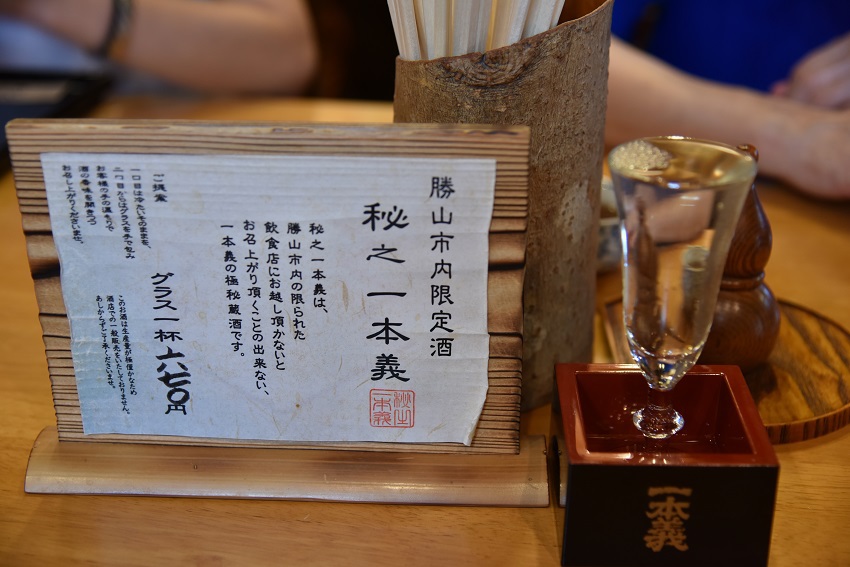 勝山市内限定酒
秘之一本義
秘之
一本義
秘之一本義は、
勝山市内の限られた
飲食店にお越し頂かないと
お召上がり頂くことの出来ない、
一本義の極秘蔵酒です。
グラス一杯六七〇円
このお酒は生産量が極僅かなため
酒店での一般販売をいたしておりません。
あしからずご了承くださいませ。
ご提案
一口目は冷たいそのままを、
二口目からはグラスを手で包み
お客様の手の温もりで
酒の香味を開きつつ
お召し上がりくださいませ。
一本義